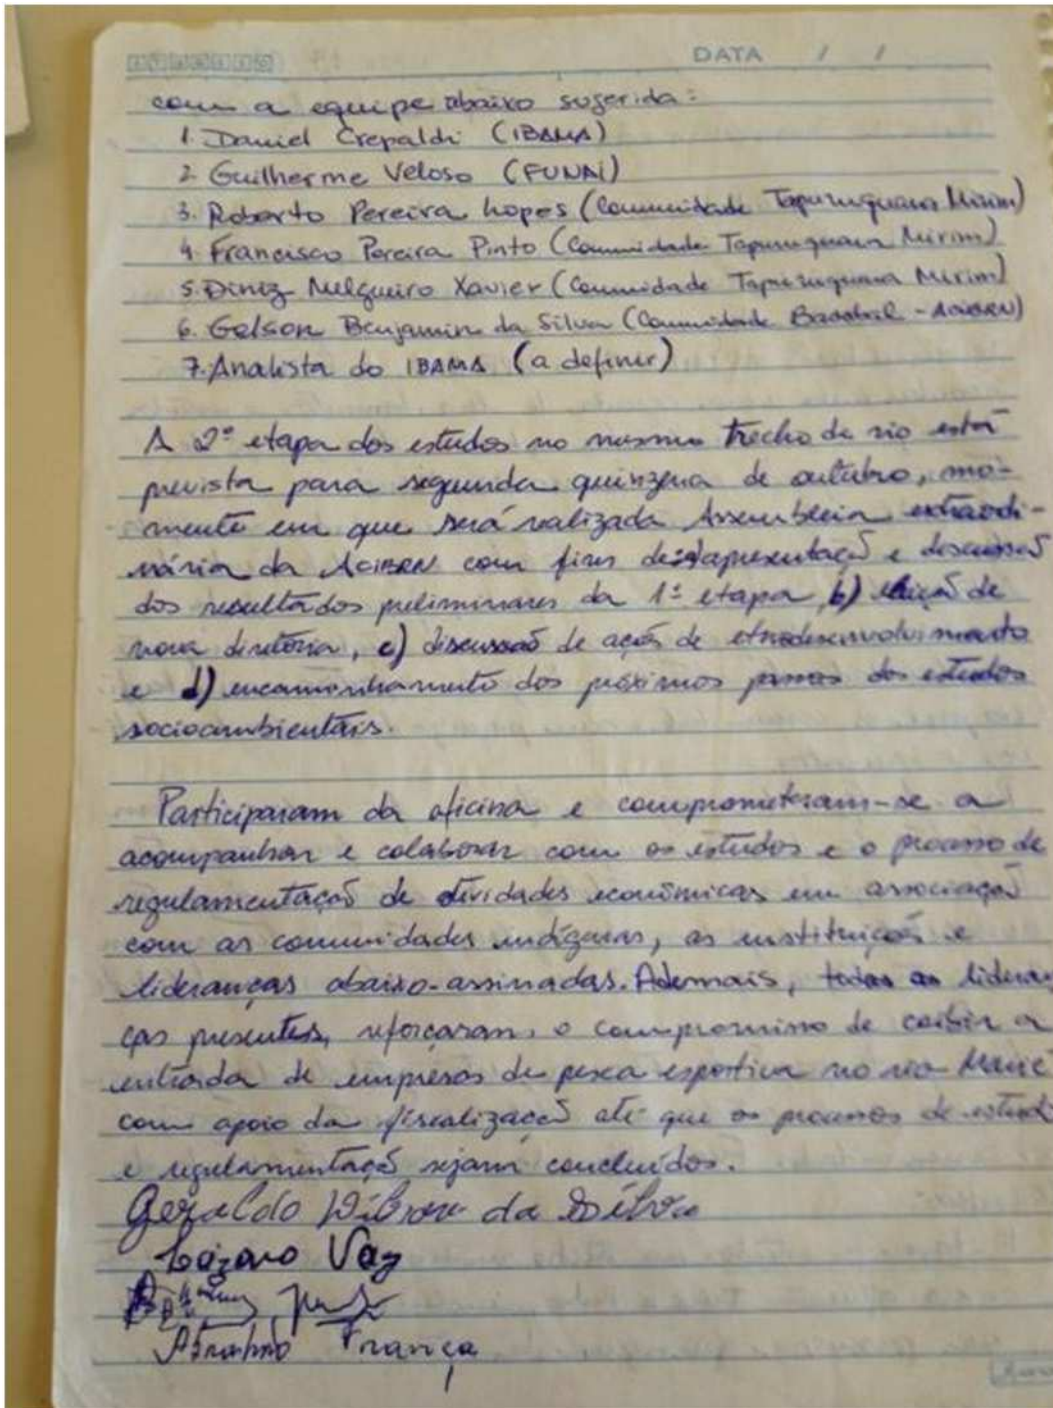 DATA / /
com a equipe abaixo sugerida:
1. Daniel Crepaldi (IBAMA)
2. Guilherme Veloso (FUNAI)
3. Roberto Pereira Lopes (Comunidade Tapuruquara Mirim)
4. Francisco Pereira Pinto (Comunidade Tapuruquara Mirim)
5. Diniz Melgueiro Xavier (Comunidade Tapuruquara Mirim)
6. Gelson Benjamin da Silva (Comunidade Bacabal - ACIBRN)
7. Analista do IBAMA (a definir)
A 2ª etapa dos estudos no mesmo trecho de rio está
prevista para segunda quinzena de outubro, mo-
mento em que será realizada Assembleia extraordi-
nária da ACIBRN com fins de: a) apresentação e discussão
dos resultados preliminares da 1ª etapa, b) eleição de
nova diretoria, c) discussão de ações de etnodesenvolvimento
e d) encaminhamento dos próximos passos dos estudos
socioambientais.
Participaram da oficina e comprometeram-se a
acompanhar e colaborar com os estudos e o processo de
regulamentação de atividades econômicas em associação
com as comunidades indígenas, as instituições e
lideranças abaixo-assinadas. Ademais, todas as lideran
ças presentes, reforçaram, o compromisso de coibir a
entrada de empresas de pesca esportiva no rio Marié
com apoio da fiscalização até que os processos de estudo
e regulamentação sejam concluídos.
Geraldo da Silva
Lázaro Vaz
Abrahão França